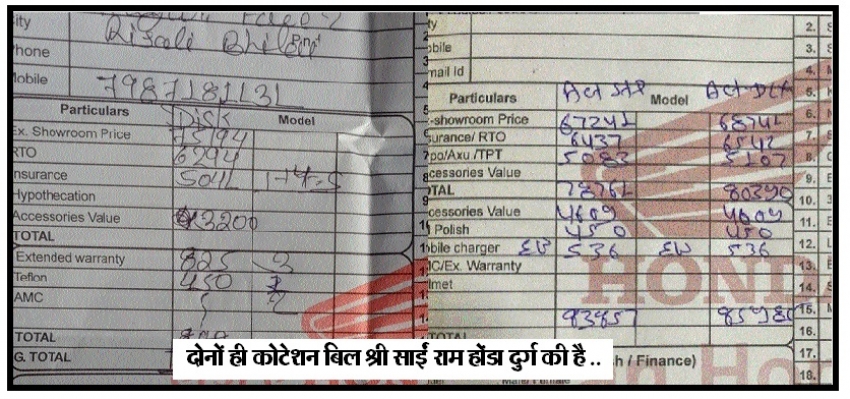 ity
Risali Bhilai
hone
obile 7987181131
Particulars Disk Model
Ex. Showroom Price 75194
RTO 6294
nsurance 5012 1+4=5
Hypothecation
Accessories Value 3200
TOTAL
Extended warranty 825 3
Teflon 450
AMC 2
TOTAL
G. TOTAL
ty
obile
mail id
Particulars Act STD Model Act DLX
-showroom Price 67241 68741
surance/ RTO 6437 6542
po/Axu /TPT 5083 5107
cessories Value
OTAL 78761 80390
cessories Value 4609 4609
Polish 450 450
bile charger EW 536 EW 536
C/Ex. Warranty
lmet
83857 85980
TOTAL
h / Finance)
2.
3.
4.
5.
6.
7.
8.
9.
10.
11.
12.
13.
14.
15.
16.
17.
18.
HONDA
दोनों ही कोटेशन बिल श्री साईं राम होंडा दुर्ग की है ..